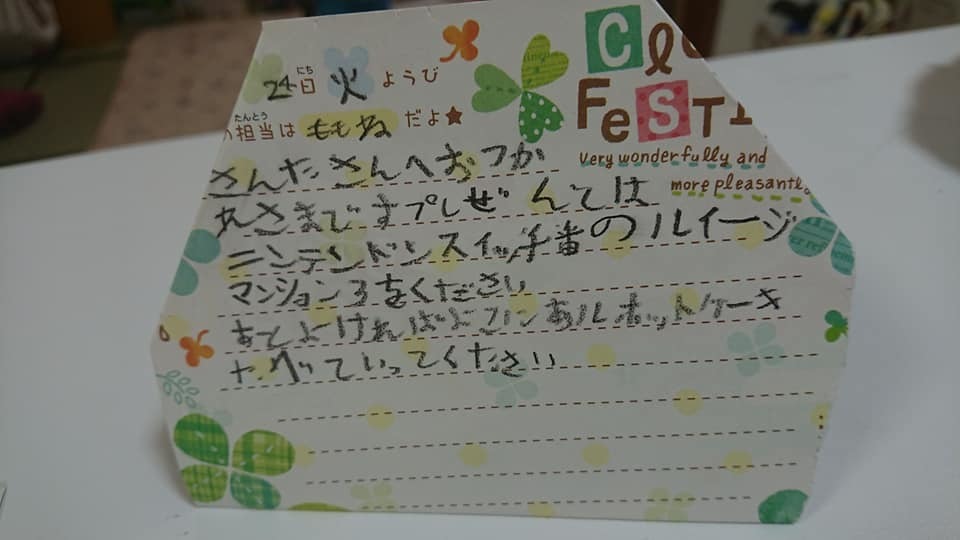 Cl
FeSTI
very wonderfully and
more pleasantly
24日 にち 火 ようび
担当は たんとう ももね だよ★
さんたさんへおつか
れさまですプレゼんとは
ニンテンドンスイッチ番のルイージ
マンション3をください
あとよければよこにあるホットケーキ
たべていってください